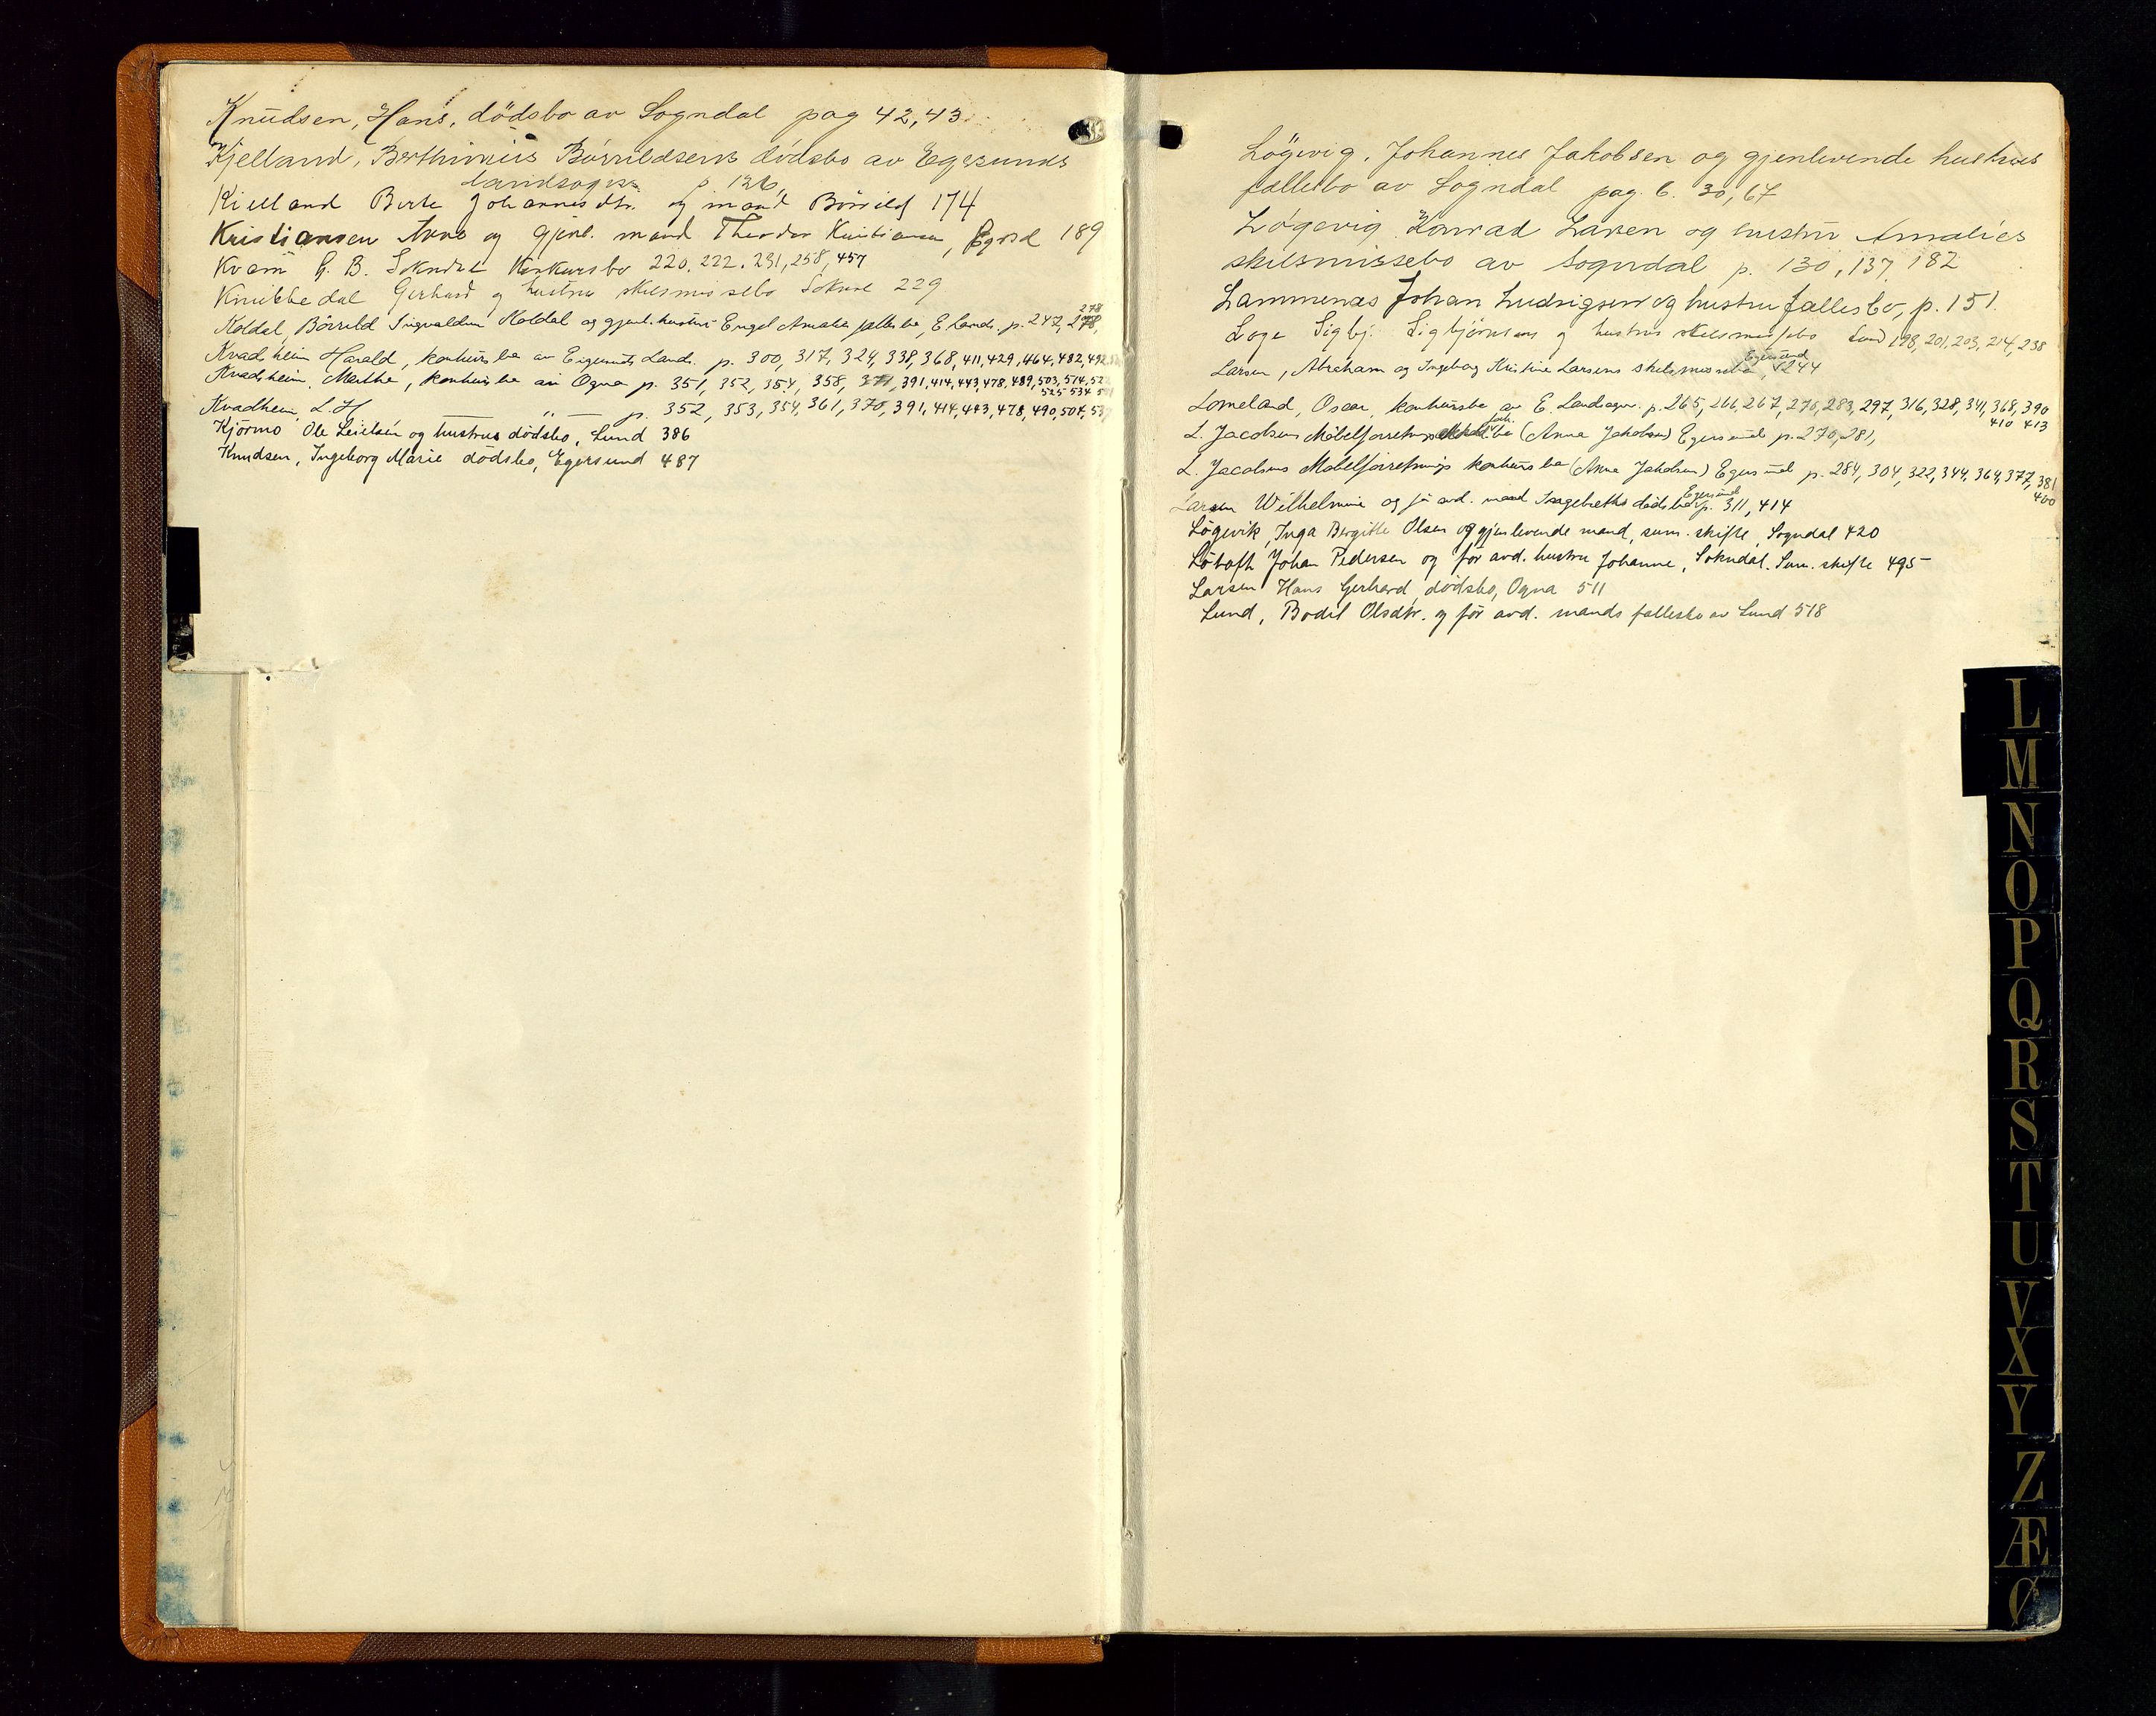 Knudsen, Hans, dödsbo av Sogndal pag 42, 43
Kjelland, Berthinius Börrildsens dödsbo av Egersunds
landsogn p. 126
Kielland Berte Johannesdtr. og mand Börrild 174
Kristiansen Anna og gjenl. mand Theodor Kristiansen, Egrsd 189
Kvam G. B. Sokndal Konkursbo 220, 222, 231, 258, 457
Knibbedal Gerhard og hustru skilsmissebo Sokndal 229
278
Koldal, Börrild Ingvaldsen Koldal og gjenl. hustru Engel Amalia fellesbo, E. Lands. p. 247,
Kvadsheim Harald, konkursbo av Eigersunds Lands. p. 300, 317, 324, 338, 368, 411, 429, 464, 482, 492
Kvadsheim, Marthe, konkursbo av Ogna p. 351, 352, 354, 358, 371, 391, 414, 443, 478, 489, 503, 514, 522
525 534
Kvadheim, L. H. — " — p. 352, 353, 354, 361, 370, 391, 414, 443, 478, 490, 504,
Kjörmo Ole Leielsen og hustrus dödsbo, Lund 386
Knudsen, Ingeborg Marie dödsbo, Egersund 487
Lögevig, Johannes Jakobsen og gjenlevende hustrus
fællesbo av Sogndal pag. 6. 30, 67
Lögevig Konrad Larsen og hustru Amalies
skilsmissebo av Sogndal p. 130, 137, 182
Lammenes Johan Ludvigsen og hustru fællesbo, p. 151.
Loge Sigbj. Sigbjörnsens og hustrus skilsmissebo Lund 198, 201, 203, 214, 238
Egersund
Larsen, Abraham og Ingeborg Kristine Larsens skilsmissebo, 244
Lomeland, Oscar, konkursbo av E. Landsogn. p. 265, 266, 267, 276, 283, 297, 316, 328, 341, 368, 390
410 413
L. Jacobsens Möbelforretnings bo (Anna Jakobsen) Egersund p. 270, 281,
L. Jacobsens Möbelforretnings konkursbo (Anna Jakobsen) Egersund p. 284, 304, 322, 344, 364, 377, 381
400
Egersund
Larsen Wilhelmine og för avd. mand Ingebreths dödsbo p. 311, 414
Lögevik, Inga Bergitte Olsen og gjenlevende mand, sum. skifte, Sogndal 420
Lötoft Johan Pedersen og för avd. hustru Johanne, Sokndal. Sum. skifte 495
Larsen Hans Gerhard, dödsbo, Ogna 511
Lund, Bodil Olsdtr. og för avd. mands fællesbo av Lund 518
L
M
N
O
P
Q
R
S
T
U
V
X
Y
Z
Æ
Ø